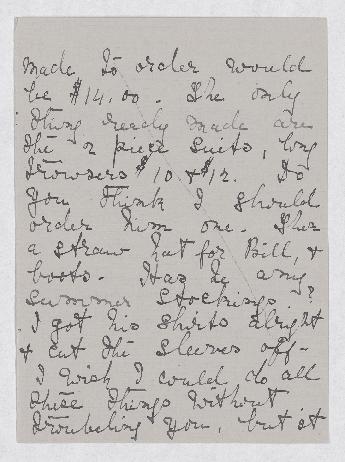 made to order would
be $14.00. The only
thing ready made are
the 2 piece suits, long
trowsers $10 & $12. Do
you think I should
order him one. Then
a straw hat for Bill, &
boots. Has he any
summer stockings?
I got his shirts alright
& cut the sleeves off-
I wish I could do all
these things without
troubling you, but it